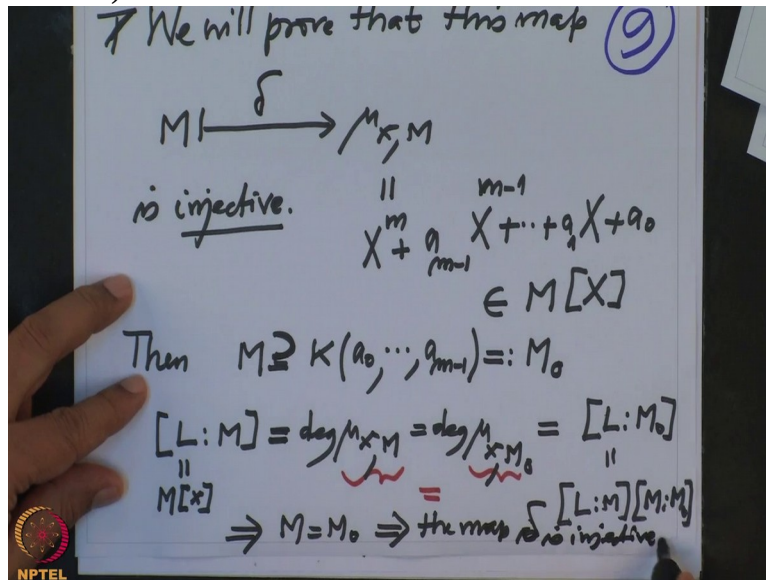 We will prove that this map 9
δ
M ↦ μ_x,M
=
is injective.
X^m + a_m-1 X^m-1 + ··· + a_1 X + a_0
∈ M[X]
Then M ⊇ K(a_0, ···, a_m-1) =: M_0
[L:M] = deg μ_x,M = deg μ_x,M_0 = [L:M_0]
= = =
M[x] [L:M][M:M_0]
⇒ M = M_0 ⇒ the map δ is injective.
NPTEL